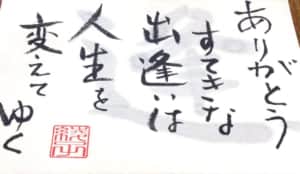 ありがとう
すてきな
出逢いは
人生を
変えてゆく